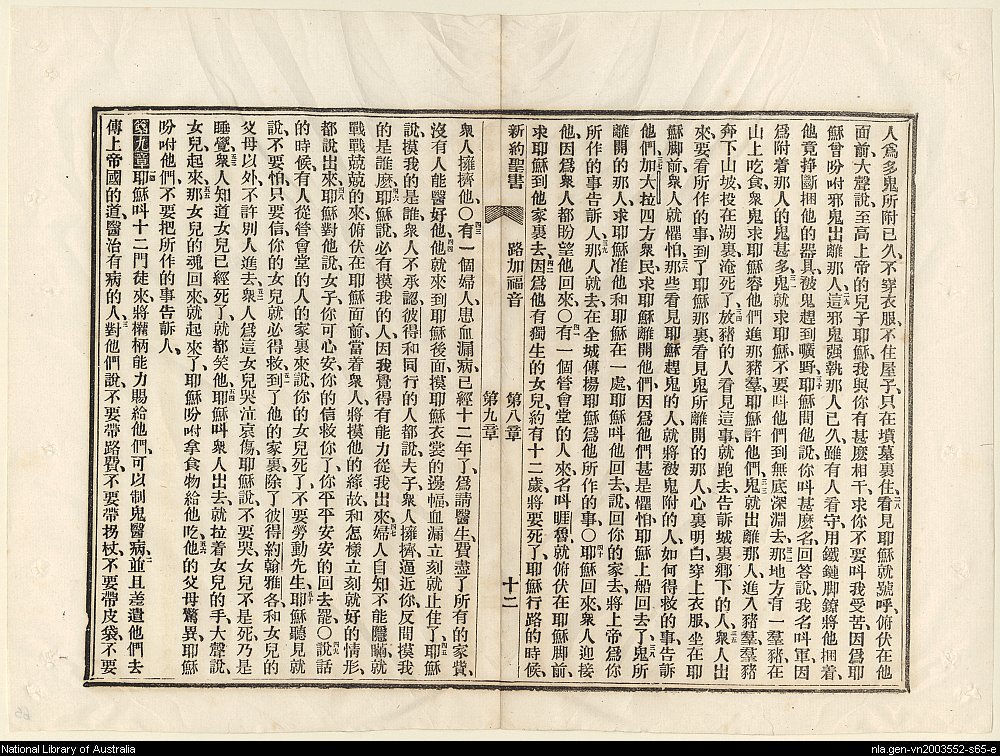 人爲多鬼所附已久不穿衣服不住屋子只在墳墓裏住二八看見耶穌就號呼俯伏在他
面前大聲說至高上帝的兒子耶穌我與你有甚麽相干求你不要叫我受苦因爲耶
穌曾吩咐邪鬼出離那人這邪鬼强執那人已久雖有人看守用鐵鏈脚鐐將他捆着
他竟掙斷捆他的器具被鬼趕到曠野三十耶穌問他說你叫甚麽名回答說我名叫軍因
爲附着那人的鬼甚多三一鬼就求耶穌不要叫他們到無底深淵去三二那地方有一羣豬在
山上吃食衆鬼求耶穌容他們進那豬羣耶穌許他們三三鬼就出離那人進入豬羣羣豬
奔下山坡投在湖裏淹死了三四放豬的人看見這事就跑去告訴城裏鄉下的人三五衆人出
來要看所作的事到了耶穌那裏看見鬼所離開的那人心裏明白穿上衣服坐在耶
穌脚前衆人就懼怕三六那些看見耶穌趕鬼的人就將被鬼附的人如何得救的事告訴
他們三七加大拉四方衆民求耶穌離開他們因爲他們甚是懼怕耶穌上船回去了三八鬼所
離開的那人求耶穌准他和耶穌在一處耶穌叫他回去說回你的家去將上帝爲你
所作的事告訴人三九那人就去在全城傳揚耶穌爲他所作的事〇四十耶穌回來衆人迎接
他因爲衆人都盼望他回來〇四一有一個管會堂的人來名叫睚魯就俯伏在耶穌脚前
求耶穌到他家裏去四二因爲他有獨生的女兒約有十二歲將要死了耶穌行路的時候
新約聖書 路加福音 第八章 第九章 十二
衆人擁擠他〇四三有一個婦人患血漏病已經十二年了爲請醫生費盡了所有的家貲
沒有人能醫好他四四他就來到耶穌後面摸耶穌衣裳的邊幅血漏立刻就止住了四五耶穌
說摸我的是誰衆人不承認彼得和同行的人都說夫子衆人擁擠逼近你反問摸我
的是誰麽四六耶穌說必有摸我的人因我覺得有能力從我出來四七婦人自知不能隱瞞就
戰戰兢兢的來俯伏在耶穌面前當着衆人將摸他的緣故和怎樣立刻就好的情形
都說出來四八耶穌對他說女子你可心安你的信救你了你平平安安的回去罷〇四九說話
的時候有人從管會堂的人的家裏來說你的女兒死了不要勞動先生五十耶穌聽見就
說不要怕只要信你的女兒就必得救五一到了他的家裏除了彼得約翰雅各和女兒的
父母以外不許別人進去五二衆人爲這女兒哭泣哀傷耶穌說不要哭女兒不是死乃是
睡覺五三衆人知道女兒已經死了就都笑他五四耶穌叫衆人出去就拉着女兒的手大聲說
女兒起來五五那女兒的魂回來就起來了耶穌吩咐拿食物給他吃五六他的父母驚異耶穌
吩咐他們不要把所作的事告訴人
第九章一耶穌叫十二門徒來將權柄能力賜給他們可以制鬼醫病二並且差遣他們去
傳上帝國的道醫治有病的人三對他們說不要帶路費不要帶拐杖不要帶皮袋不要
National Library of Australia
nla.gen-vn2003552-s65-e